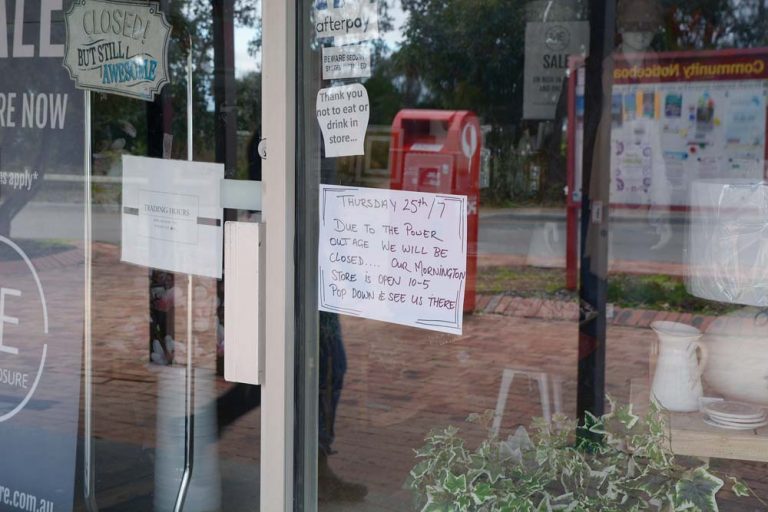 ALE
RE NOW
es apply*
E
OSURE
re.com.au
CLOSED!
BUT STILL
AWESOME
TRADING HOURS
afterpay
BEWARE
Thank you
not to eat or
drink in
store...
THURSDAY 25th/7
DUE TO THE POWER
OUTAGE WE WILL BE
CLOSED.... OUR MORNINGTON
STORE IS OPEN 10-5
POP DOWN & SEE US THERE
SALE
Community Noticeboa